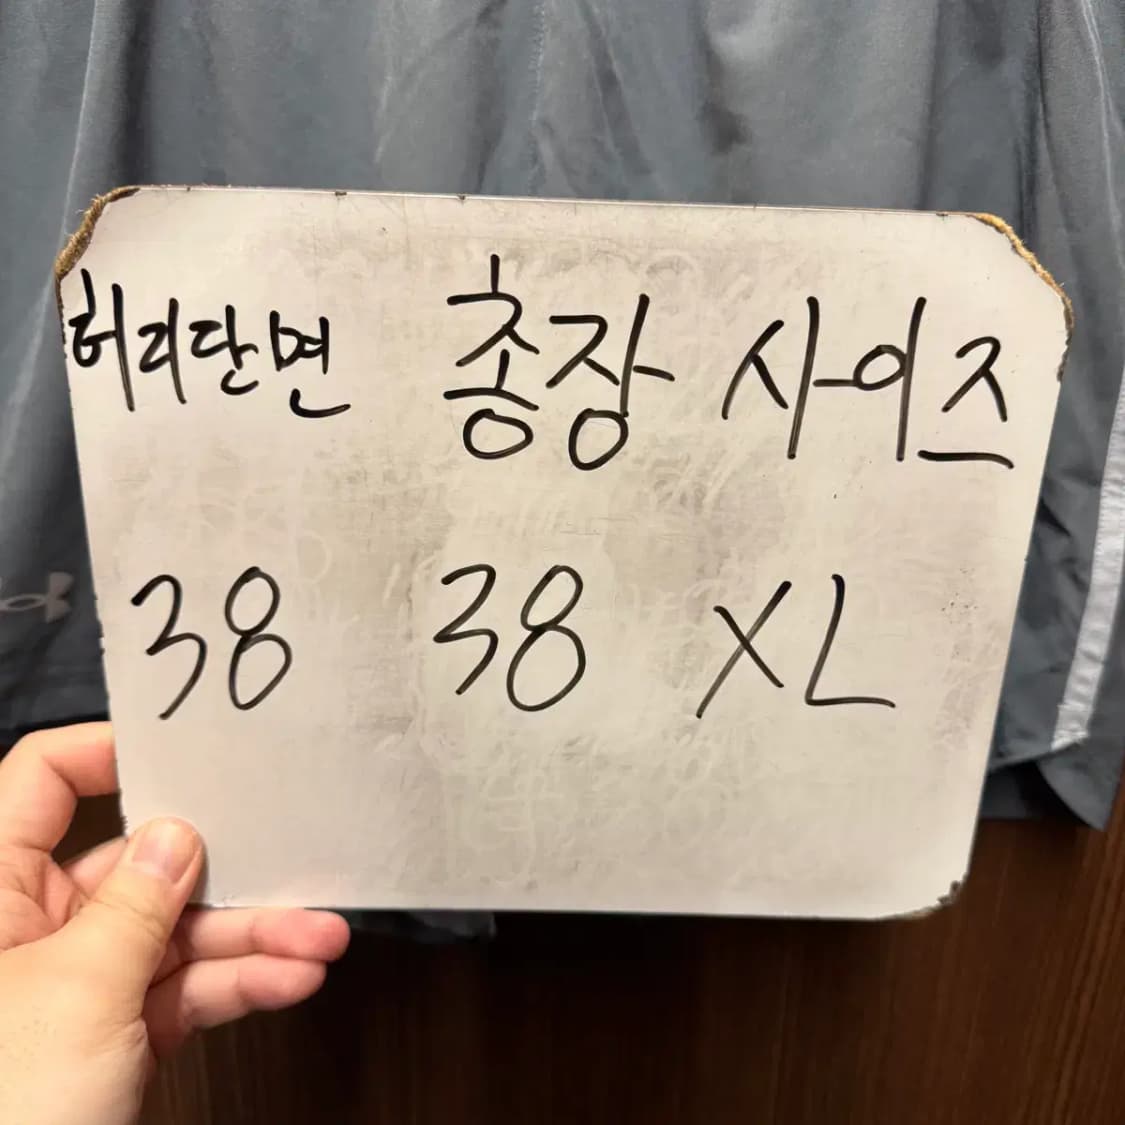 허리단면 총장 사이즈
38 38 XL